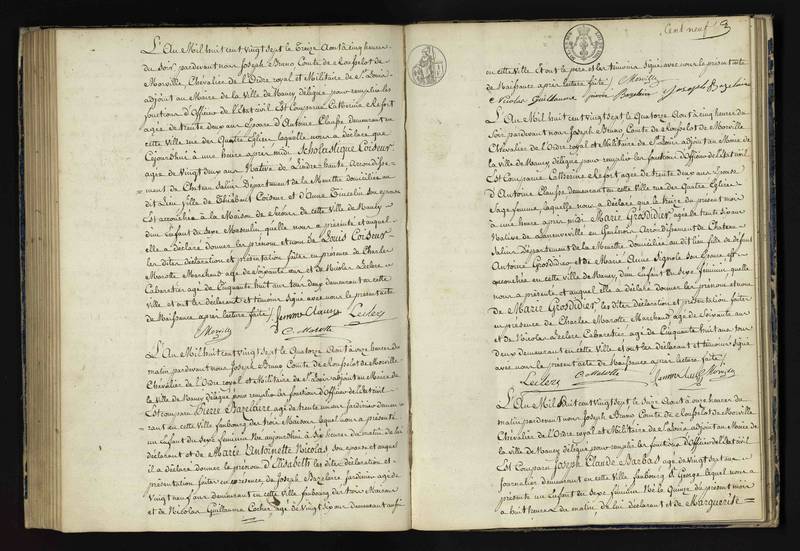 L'An Mil huit cent vingt sept le Treize Aout à cinq heures
du Soir pardevant nous Joseph Bruno Comte de Rousselot de
Morville, Chevalier de l'Ordre royal et Militaire de St Louis
adjoint au Maire de la Ville de Nancy délégué pour remplir les
fonctions d'Officier de l'Etat civil Est Comparue Catherine Refort
agée de trente deux ans Epouse d'Antoine Clausse demeurant en
cette Ville rue des Quatre Eglises laquelle nous a déclaré que
Cejourd'hui à une heure après midi Scholastique Coiseur
agée de Vingt deux ans Native de Lindre-haute, Arrondisse-
ment de Chateau Salins Département de la Meurthe domiciliée au
dit Lieu fille de Thiébaut Coiseur et d'Anne son épouse
Est accouchée à la Maison de Secours de cette Ville de Nancy
d'un Enfant du Sexe Masculin qu'elle nous a présenté et auquel
elle a déclaré donner les prénom et nom de Louis Coiseur
les dites déclaration et présentation faites en présence de Charles
Marotte Marchand agé de Soixante ans et de Nicolas Leclerc
Cabaretier agé de Cinquante huit ans tous deux demeurant en cette
Ville et ont les déclarant et témoins Signé avec nous le présent acte
de Naissance après lecture faite /. femme Clausse Leclerc
Morville C. Marotte
L'An Mil huit cent vingt sept le Quatorze Aout à onze heures du
matin pardevant nous Joseph Bruno Comte de Rousselot de Morville
Chevalier de l'Ordre royal et Militaire de St Louis adjoint au Maire de
la Ville de Nancy délégué pour remplir les fonctions d'Officier de l'Etat civil
Est comparu Pierre Bazelaire agé de trente un ans Jardinier demeu-
rant en cette Ville faubourg des trois Maisons lequel nous a présenté
un Enfant du Sexe féminin Né aujourd'hui à Six heures du matin de lui
déclarant et de Marie Antoinette Nicolas Son épouse et auquel
il a déclaré donner le prénom d'Elisabeth les dites déclaration et
présentation faites en présence de Joseph Bazelaire Jardinier agé de
Vingt neuf ans demeurant en cette Ville faubourg des trois Maisons
et de Nicolas Guillaume Cocher agé de Vingt six ans demeurant aussi
Cent neuf
en cette Ville Et ont le père et les témoins Signé avec nous le présent acte
de Naissance après lecture faite /. Morville
Nicolas Guillaume pierre Bazelaire Joseph Bazelaire
L'An Mil huit cent vingt sept le Quatorze Aout à cinq heures du
Soir pardevant nous Joseph Bruno Comte de Rousselot de Morville
Chevalier de l'Ordre royal et Militaire de St Louis adjoint au Maire de
la Ville de Nancy délégué pour remplir les fonctions d'Officier de l'Etat civil
Est Comparue Catherine Refort agée de trente deux ans Epouse
d'Antoine Clausse demeurant en cette Ville rue des Quatre Eglises
Sage femme, laquelle nous a déclaré que le treize du présent mois
à une heure après midi Marie Grosdidier agée de trente Six ans
Native de Laneuveville en Arrondissement de Chateau-
Salins Département de la Meurthe domiciliée au dit lieu fille de défunt
Antoine Grosdidier et de Marie Anne Son Epouse est
accouchée en cette Ville de Nancy d'un Enfant du Sexe féminin qu'elle
nous a présenté et auquel elle a déclaré donner les prénom et nom
de Marie Grosdidier, les dites déclaration et présentation faites
en présence de Charles Marotte Marchand agé de Soixante ans
et de Nicolas Leclerc Cabaretier agé de Cinquante huit ans tous
deux demeurant en cette Ville et ont les déclarant et témoins Signé
avec nous le présent acte de Naissance après lecture faite /.
Leclerc C. Marotte femme Clausse Morville
L'An Mil huit cent vingt sept le Seize Aout à onze heures du
matin pardevant nous Joseph Bruno Comte de Rousselot de Morville
Chevalier de l'Ordre royal et Militaire de St Louis adjoint au Maire de
la Ville de Nancy délégué pour remplir les fonctions d'Officier de l'Etat civil
Est Comparu Joseph Claude Barbas agé de vingt sept ans
Journalier demeurant en cette Ville faubourg St George lequel nous a
présenté un Enfant du Sexe féminin Né le Quinze du présent mois
à huit heures du matin de lui déclarant et de Marguerite